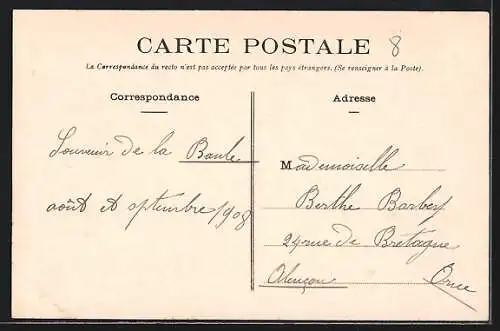 CARTE POSTALE 8
La Correspondance du recto n'est pas acceptée par tous les pays étrangers. (Se renseigner à la Poste).
Correspondance
Souvenir de la Baule
août et septembre 1908
Adresse
Mademoiselle
Berthe Barbey
24 rue de Bretagne
Alençon Orne